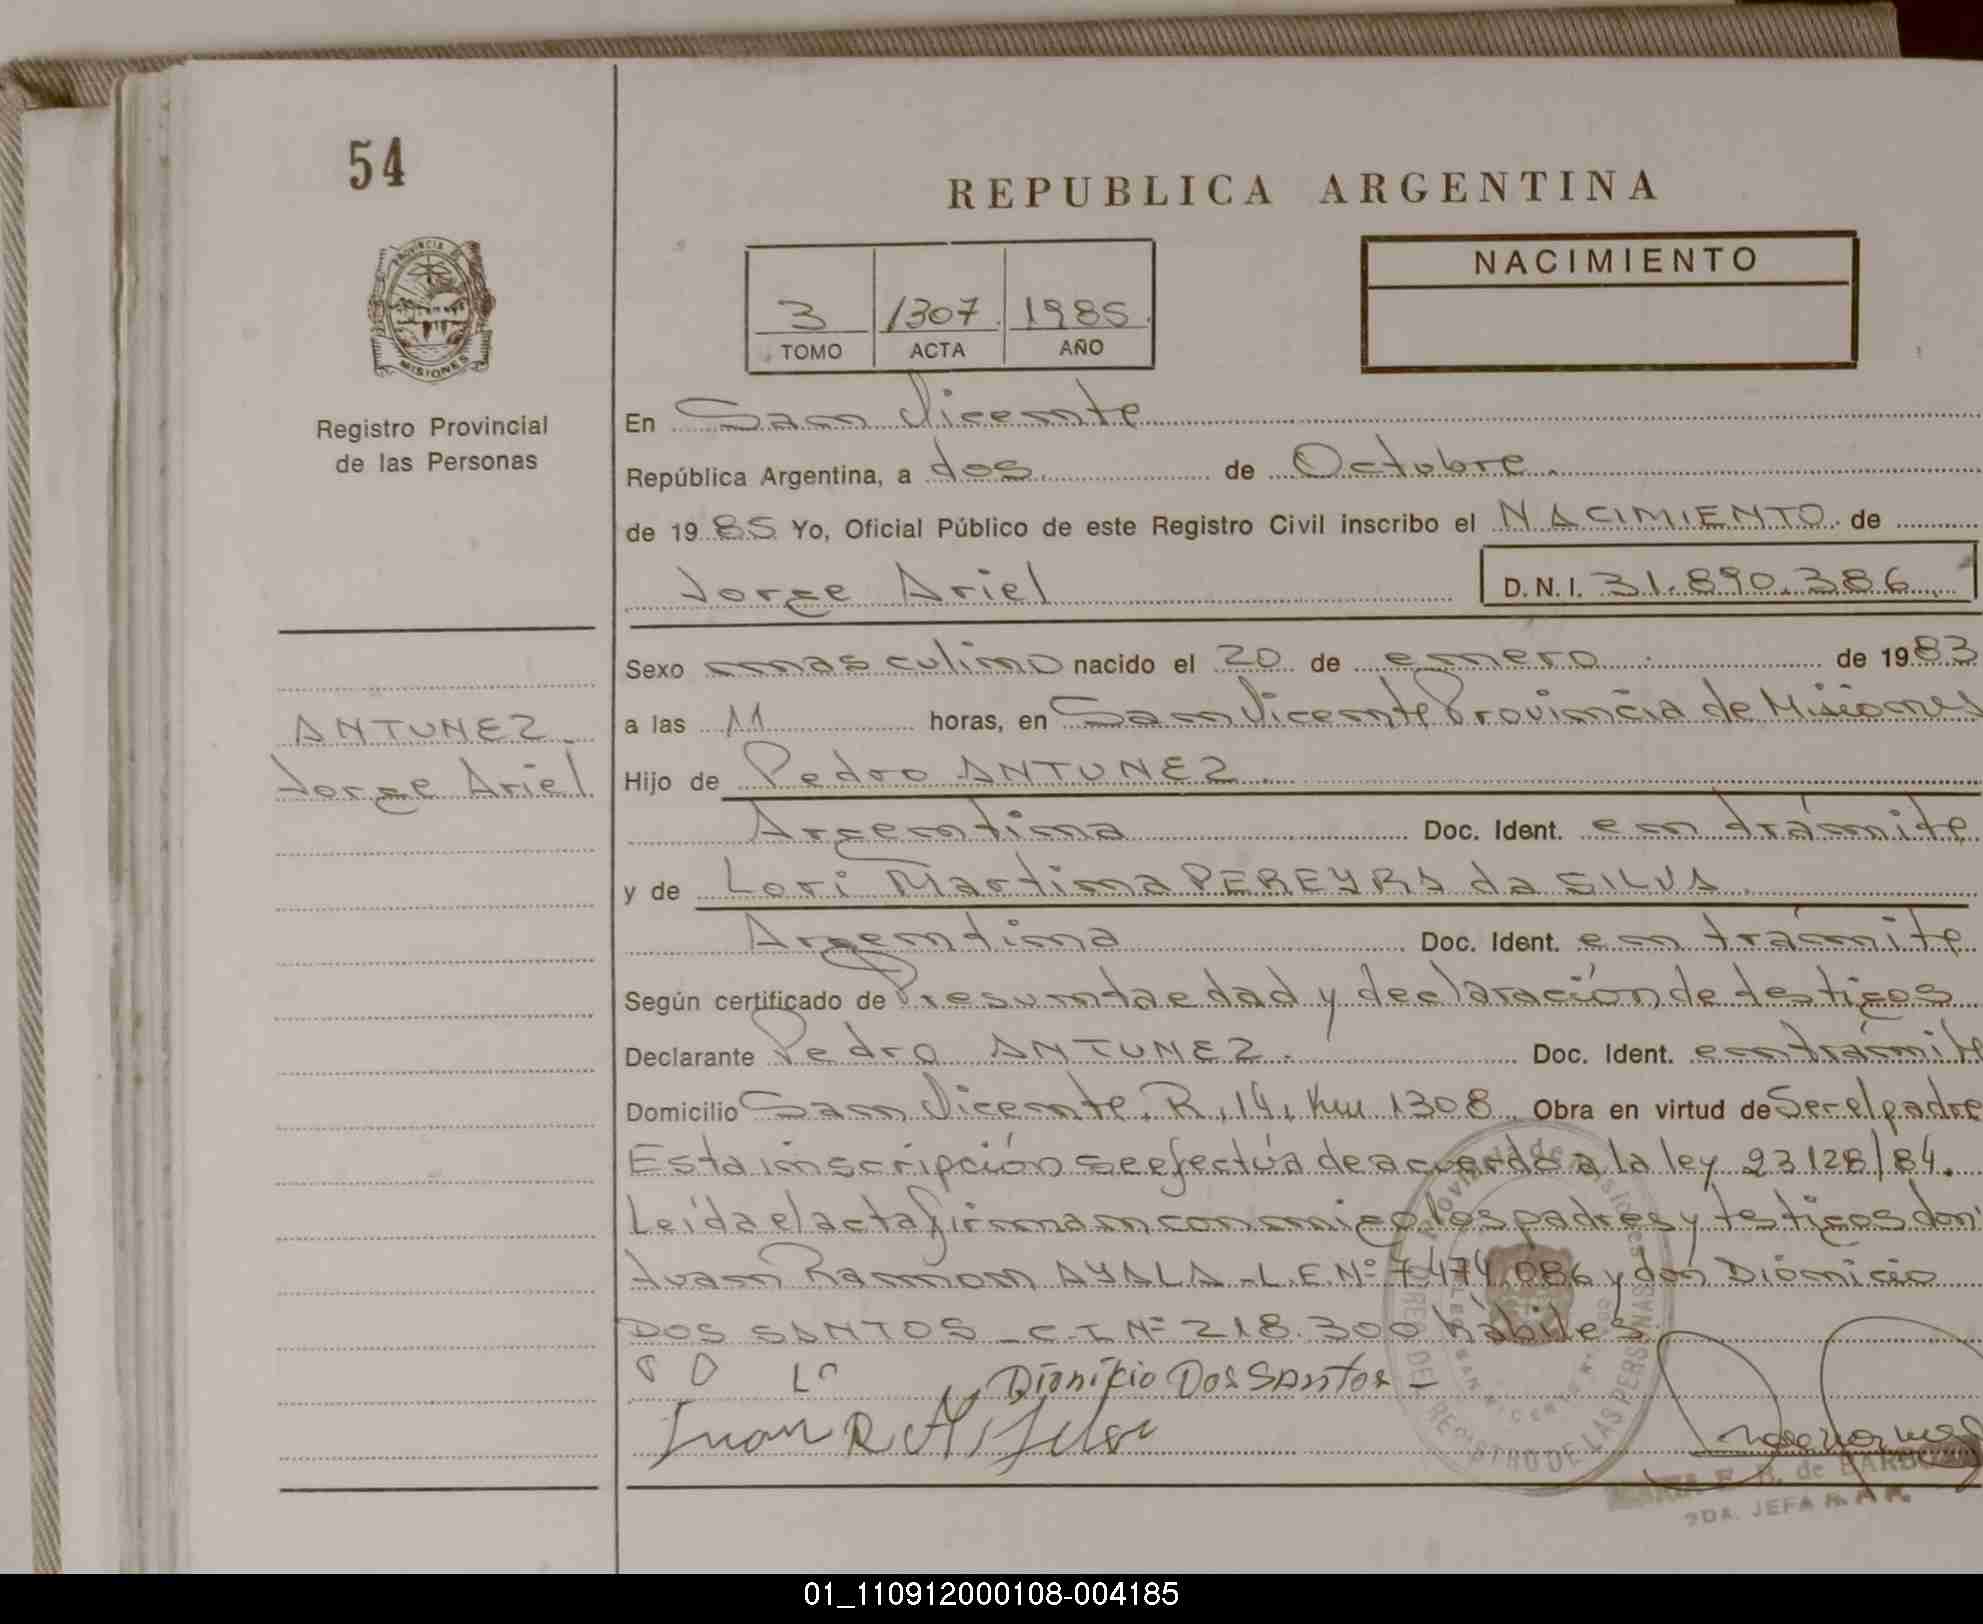 54
REPUBLICA ARGENTINA
PROVINCIA DE
MISIONES
Registro Provincial
de las Personas
3 1307 1985
TOMO ACTA AÑO
NACIMIENTO
En San Vicente
República Argentina, a dos de Octubre
de 1985 Yo, Oficial Público de este Registro Civil inscribo el NACIMIENTO de
Jorge Ariel D.N.I. 31.890.386
Sexo masculino nacido el 20 de enero de 1983
ANTUNEZ
Jorge Ariel
a las 11 horas, en San Vicente Provincia de Misiones
Hijo de Pedro ANTUNEZ
Argentina Doc. Ident. en trámite
y de Lori Martina PEREYRA da SILVA
Argentina Doc. Ident. en trámite
Según certificado de Presunta edad y declaración de testigos
Declarante Pedro ANTUNEZ. Doc. Ident. en trámite
Domicilio San Vicente, R, 14, Km 1308 Obra en virtud de Ser el padre
Esta inscripción se efectúa de acuerdo a la ley 23128/84.
Leída el acta firman conmigo los padres y testigos don
Juan Ramon AYALA - L.E.Nº 7.474.086 y don Dionicio
DOS SANTOS - C.I Nº 218.300 hábiles
Dionicio Dos Santos -
Juan R
REGISTRO DE LAS PERSONAS
de BARBO
2DA. JEFA
01_110912000108-004185